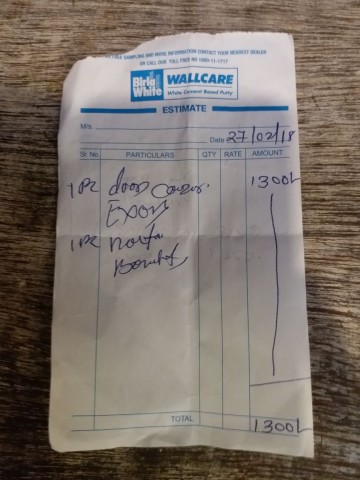 FREE SAMPLING AND MORE INFORMATION CONTACT YOUR NEAREST DEALER
OR CALL OUR TOLL FREE NO 1800-11-1717
Birla White WALLCARE
White Cement Based Putty
ESTIMATE
M/s.
Date 27/02/18
Sr. No. PARTICULARS QTY RATE AMOUNT
1 PC door 1300/-
1 PC
TOTAL 1300/-